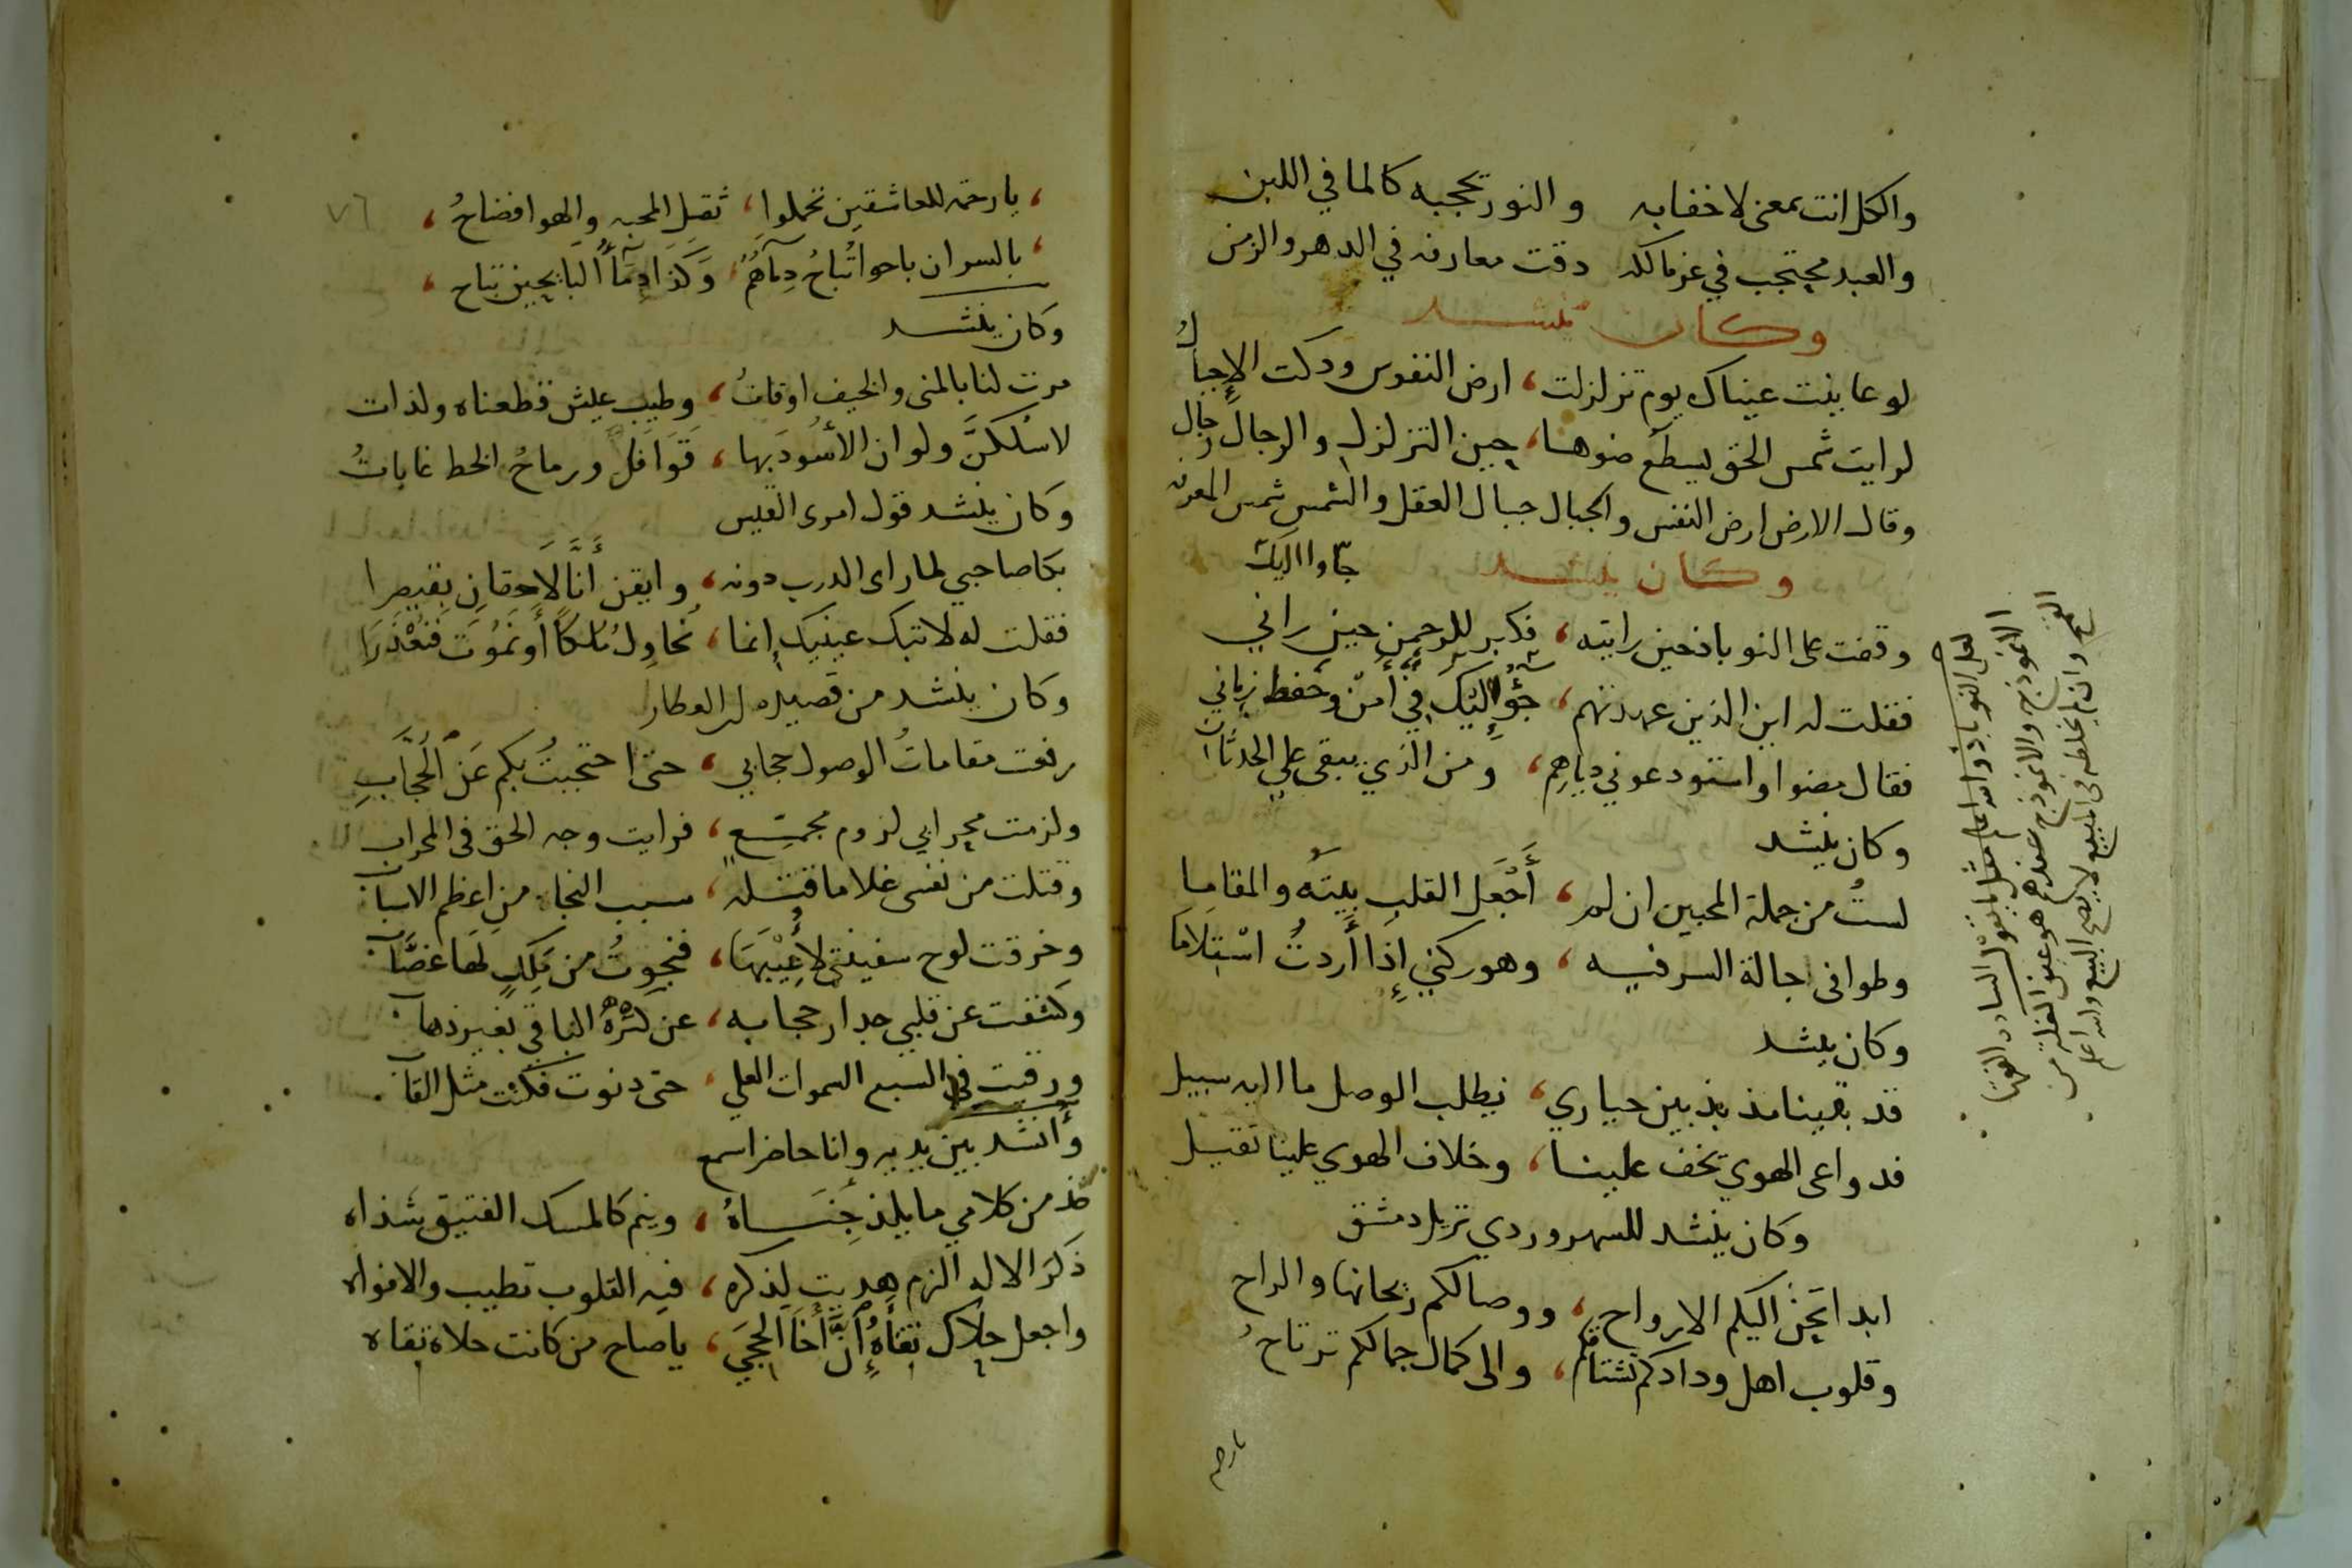 والكل انت بمعنى لا خفا به والنور يحجبه كالما في اللبن
والعبد محتجب في عز مالكه دقت معارفه في الدهر والزمن
وكان ينشد
لو عاينت عيناك يوم تزلزلت، ارض النفوس ودكت الاجبال
لرايت شمس الحق يسطع ضوها، حين التزلزل والرجال رجال
وقال الارض ارض النفس والجبال جبال العقل والشمس شمس المعرفه
وكان ينشد
جاوا اليك
وقفت على النوباذ حين رايته، فكبر للرحمن حين راني
فقلت له اين الذين عهدتهم، إليك في أمن وحفظ زماني
فقال مضوا واستودعوني ديارهم، ومن الذي يبقى علي الحدثان
وكان ينشد
لستُ من جملة المحبين ان لم، أجْعَل القلب بيتَه والمقاما
وطوافى اجالة السر فيه، وهو ركني إذا أردتُ اسْتِلاما
وكان ينشد
قد بقينا مذبذبين حياري، نطلب الوصل ما اليه سبيل
فدواعى الهوي تخف علينا، وخلاف الهوي علينا ثقيل
وكان ينشد للسهروردي نزيل دمشق
ابدا تحن اليكم الارواح، ووصالكم ريحانها والراح
وقلوب اهل ودادكم تشتاقكم، والى كمال جمالكم ترتاحُ
يا رحم
لعل النوباذ والله اعلم مثل ما تقول السادة الفقها
الانموذج والانموذج عندهم هو عين الغلة من
القمح وان لم يخلطه في المبيع لا يصح البيع والله اعلم
٧٦
، يا رحمة للعاشقين تحملوا، ثقل المحبه والهوا فضاحُ،
، بالسر ان باحوا تُباحُ دِماهُم، وكذا دِمآءُ البايحين تباح،
وكان ينشد
مرت لنا بالمنى والخيف اوقاتُ، وطيب عيش قطعناه ولذات
لاسْلكنَّ ولو ان الأسُودَ بها، قَوَافل ورماحُ الخط غاباتُ
وكان ينشد قول امرى القيس
بكا صاحبي لما راى الدرب دونه، وايقن أنَّا لَاحِقان بقيصرا
فقلت له لا تبك عينيك إنما، نُحاوِلُ مُلكًا أو نَمُوتَ فَنُعْذَرَا
وكان ينشد من قصيده لر العطار
رفعت مقاماتُ الوصول حجابي، حتى احتجبتُ بكم عَن الحُجَّابِ
ولزمت محرابي لزوم مجمّع، فرايت وجه الحق فى المحراب
وقتلت من نفسى غلاما قتله، سبب النجاه من اعظم الاسباب
وخرقت لوح سفينتى لأُعِيْبَهَا، فنجوتُ من مَلِكٍ لها غصَّاب
وكشفت عن قلبي جدار حجابه، عن كنزه الباقي بغير ذهاب
ورقيت فى السبع السموات العلى، حتى دنوت فكنت مثل القاب
وأنشد بين يديه وانا حاضر اسمع
خذ من كلامي ما يلذ جَنَاهُ، وينم كالمسك الفتيق شذاه
ذكر الاله الزم هديت لذكره، فبه القلوب تطيب والافواه
واجعل حِلاك تقاهُ إنَّ أخَا الحِجَى، يا صاح من كانت حلاه تقاه